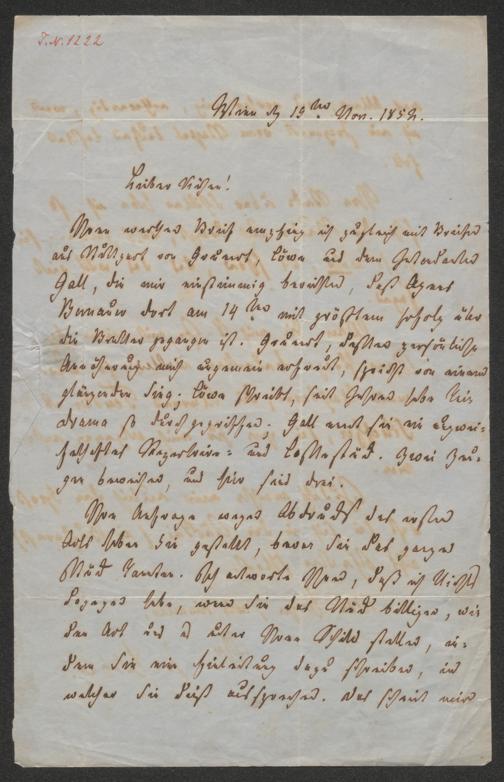 I.N. 1222
Wien d 19ten Nov. 1852.
Lieber Kühne!
Ihren werthen Brief empfing ich zugleich mit Briefen
aus Stuttgart von Grunert, Löwe und dem Intendanten
Gall, die mir einstimmig berichten, daß Agnes
Bernauer dort am 14ten mit größtem Erfolg über
die Bretter gegangen ist. Grunert, dessen persönliche
Annäherung mich ungemein erfreut, spricht von einem
glänzenden Sieg; Löwe schreibt, seit Jahren habe kein
Drama so durchgegriffen. Gall nennt sie ein unzwei-
felhaftes Repertoire- und Cassastück. Zwei Zeu-
gen beweisen, und hier sind drei.
Ihre Anfrage wegen Abdrucks des ersten
Acts haben Sie gestellt, bevor Sie das ganze
Stück kannten. Ich antworte Ihnen, daß ich Nichts
dagegen habe, wenn Sie das Stück billigen, wie
den Act und es unter Ihren Schild stellen, in-
dem Sie eine Einleitung dazu schreiben, in
welcher Sie dieß aussprechen. Das scheint mir